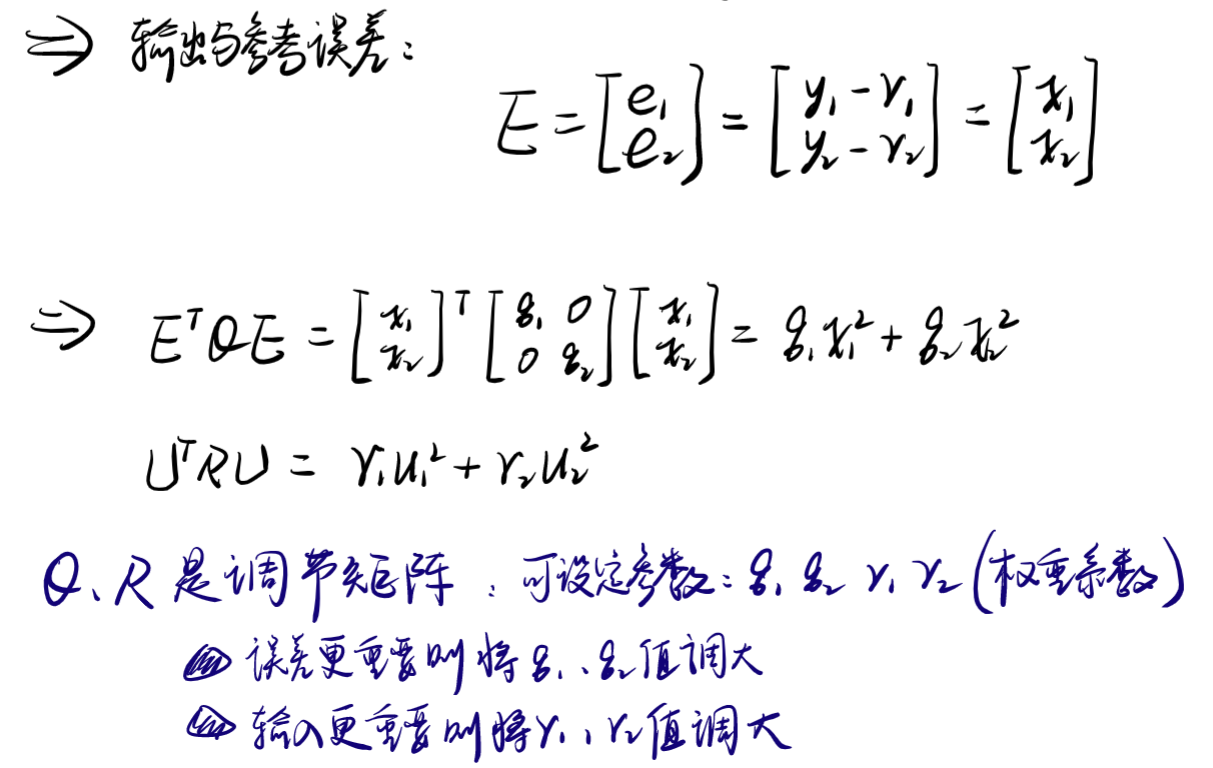 ⇒ 输出与参考误差：
E = [e₁ e₂] = [y₁ - r₁ y₂ - r₂] = [x₁ x₂]
⇒ EᵀQE = [x₁ x₂]ᵀ [q₁ 0 0 q₂] [x₁ x₂] = q₁x₁² + q₂x₂²
UᵀRU = r₁u₁² + r₂u₂²
Q、R 是调节矩阵，可设定参数：q₁ q₂ r₁ r₂（权重系数）
误差更重要则将q₁、q₂值调大
输入更重要则将r₁、r₂值调大